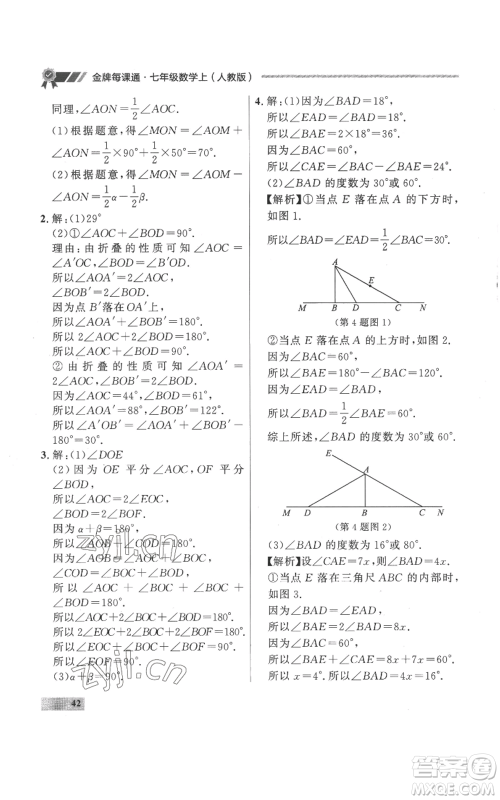 金牌每课通·七年级数学上(人教版)
同理，∠AON=1/2∠AOC.
(1)根据题意，∠MON=∠AOM+
∠AON=1/2×90°+1/2×50°=70°.
(2)根据题意，得∠MON=∠AOM-
∠AON=1/2α-1/2β.
2.解：(1)29°
(2)①∠AOC+∠BOD=90°.
理由：由折叠的性质可知∠AOC=
∠A′OC，∠BOD=∠B′OD.
所以∠AOA′=2∠AOC，∠BOB′=
2∠BOD.
因为点B′落在OA′上，
所以∠AOA′+∠BOB′=180°.
所以2∠AOC+2∠BOD=180°.
所以∠AOC+∠BOD=90°.
②由折叠的性质可知∠AOA′=
2∠AOC，∠BOB′=2∠BOD.
所以∠AOA′=88°，∠BOB′=122°.
所以∠A′OB′=∠AOA′+∠BOB′-
180°=30°.
3.解：(1)∠DOE
(2)因为OE平分∠AOC，OF平分
∠BOD，
所以∠AOC=2∠EOC，∠BOD=
2∠BOF.
因为α+β=180°，
所以∠AOB+∠COD=180°.
所以∠AOC+∠BOD=180°.
所以2∠EOC+2∠BOF=180°.
所以∠EOC+∠BOF=90°.
(3)α+β=90°.
4.解：(1)因为∠BAD=18°，
所以∠BAE=2×18°=36°.
因为∠BAC=60°，
所以∠CAE=∠BAC-∠BAE=24°.
(2)∠BAD的度数为30°或60°.
【解析】①当点E落在点A的下方时，
如图1.
所以∠BAD=∠EAD=1/2∠BAC=30°.
A
E
M B D C N
(第4题图1)
②当点E落在点A的上方时，如图2.
因为∠BAC=60°，
所以∠BAE=180°-∠BAC=120°.
所以∠BAD=1/2∠BAE=60°.
综上所述，∠BAD的度数为30°或60°.
E
A
M D B C N
(第4题图2)
(3)∠BAD的度数为16°或80°.
【解析】设∠CAE=7x，则∠EAD=4x.
①当点E落在三角尺ABC的内部时，
如图1.
因为∠BAC=60°，
所以∠BAE=2∠BAD=8x.
所以∠BAD=∠EAD=4x.
因为∠BAC=60°，
所以∠BAE+∠CAE=8x+7x=60°.
所以x=4°.所以∠BAD=4x=16°.
42
zyjl.cn
zyjl.cn
作业精灵